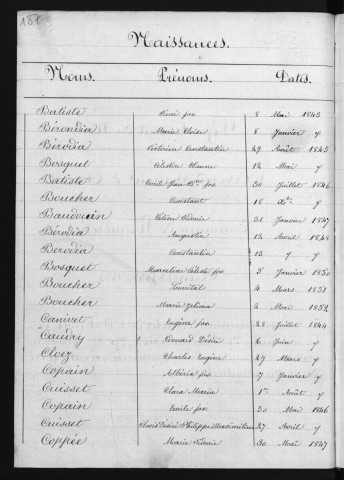 Naissances.
Noms. Prénoms. Dates.
Batiste René fos 8 Mai 1843
Bérondia Marie Cloise 8 Janvier
Bérodia Victorien Constantin 29 Août 1845
Bosquet Célestin Etienne 14 Mai
Batiste Emile Jean Bte fos 30 Juillet 1846
Boucher Constant 18 Xbre
Baudouin Sidonie 31 Janvier 1847
Bérodia Augustin 12 Avril 1848
Berodia Constantin 13
Bosquet Marceline Céleste fos 3 Janvier 1850
Boucher 4 Mars 1851
Boucher Marie Zelima 2 Mai 1852
Canivet Eugène fos 28 Juillet 1844
Caudry Edouard Désiré 6 Juin
Cloez Charles Eugène 29 Mars
Copain fos 7 Janvier
Cuisset Clara Maria 1er Août
Copain Emile fos 30 Mai 1846
Cuisset Philippe Maximilien 27 Avril
Coppée Marie Sidonie 30 Mai 1847